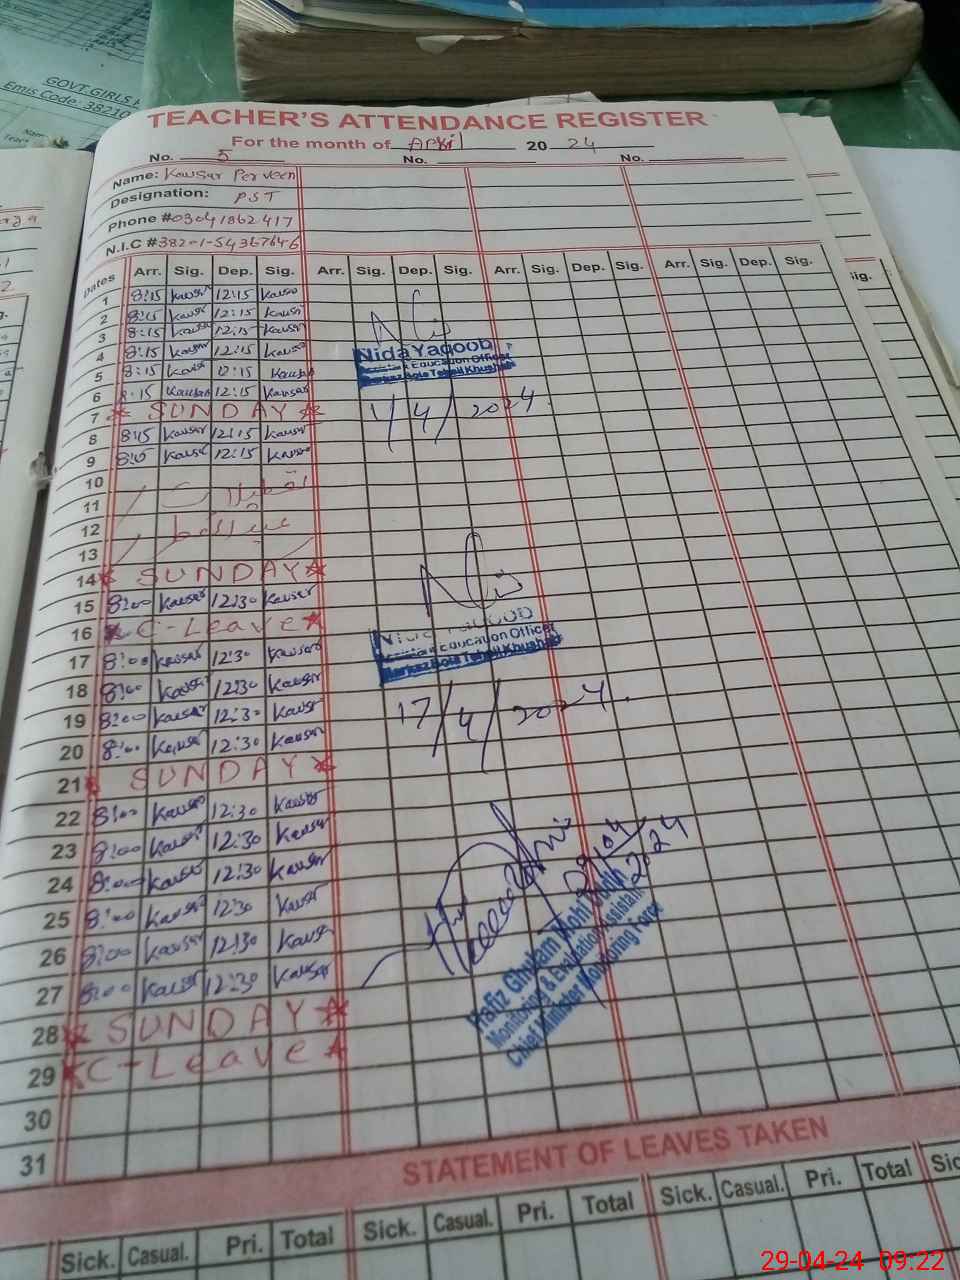 GOVT.GIRLS
Emis Code: 38210
TEACHER'S ATTENDANCE REGISTER
For the month of April 20 24
No. 5 No. No.
Name: Kausar Perveen
Designation: PST
Phone #03041862417
N.I.C #38201-54367646
Dates Arr. Sig. Dep. Sig. Arr. Sig. Dep. Sig. Arr. Sig. Dep. Sig. Arr. Sig. Dep. Sig.
1 8:15 Kausar 12:15 Kausar
2 8:15 Kausar 12:15 Kausar
3 8:15 Kausar 12:15 Kausar
4 8:15 Kausar 12:15 Kausar
5 8:15 Kausar 12:15 Kausar
6 8:15 Kausar 12:15 Kausar
7 SUNDAY
8 8:15 Kausar 12:15 Kausar
9 8:15 Kausar 12:15 Kausar
10
11 تعطیلات
12 عید الفطر
13
14 SUNDAY
15 8:00 Kausar 12:30 Kausar
16 C-Leave
17 8:00 Kausar 12:30 Kausar
18 8:00 Kausar 12:30 Kausar
19 8:00 Kausar 12:30 Kausar
20 8:00 Kausar 12:30 Kausar
21 SUNDAY
22 8:00 Kausar 12:30 Kausar
23 8:00 Kausar 12:30 Kausar
24 8:00 Kausar 12:30 Kausar
25 8:00 Kausar 12:30 Kausar
26 8:00 Kausar 12:30 Kausar
27 8:00 Kausar 12:30 Kausar
28 SUNDAY
29 C-Leave
30
31
Nida Yaqoob
Education Officer
Markaz Bola Tehsil Khushab
1/4/2024
Education Officer
Markaz Bola Tehsil Khushab
17/4/2024
29/04/2024
Hafiz Ghulam Mohi
Monitoring & Evaluation Assistant
Chief Minister Monitoring Force
STATEMENT OF LEAVES TAKEN
Sick. Casual. Pri. Total Sick. Casual. Pri. Total Sick. Casual. Pri. Total
29-04-24 09:22